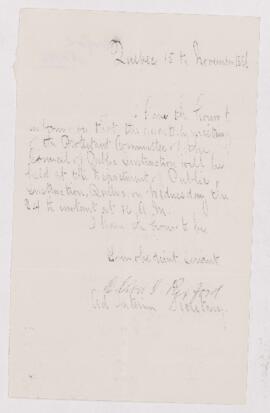 Quebec 15th November 1886
I have the honor to
inform you that the quarterly meeting
of the Protestant Committee of the
Council of Public Instruction will be
held at the Department of Public
Instruction, Quebec, on Wednesday the
24th instant at 10 A.M.
I have the honor to be
Your obedient servant
Elson I. Rexford
ad interim Secretary